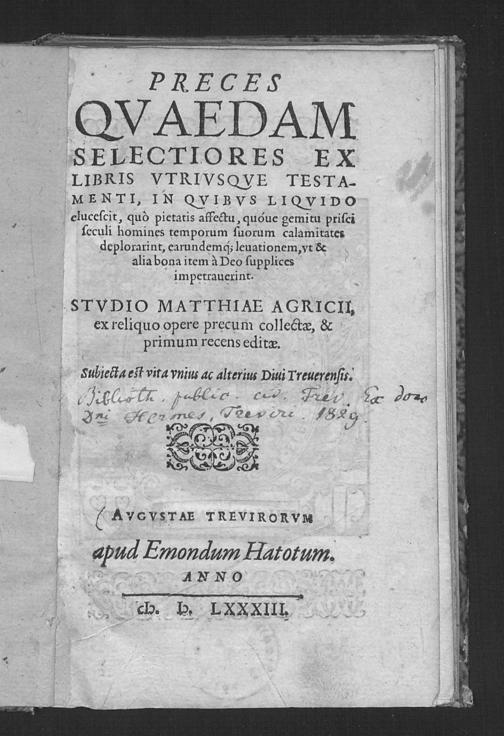 PRECES
QVAEDAM
SELECTIORES EX
LIBRIS VTRIVSQVE TESTA-
MENTI, IN QVIBVS LIQVIDO
elucescit, quò pietatis affectu, quóue gemitu prisci
seculi homines temporum suorum calamitates
deplorarint, earundemq; leuationem, vt &
alia bona item à Deo supplices
impetrauerint.
STVDIO MATTHIAE AGRICII,
ex reliquo opere precum collectæ, &
primum recens editæ.
Subjecta est vita vnius ac alterius Diui Treuerensis.
Biblioth. public. civ. Trev. Ex dono
Dni Hermes, Treviri. 1829.
AVGVSTAE TREVIRORVM
apud Emondum Hatotum.
ANNO
cIↄ. Iↄ. LXXXIII.